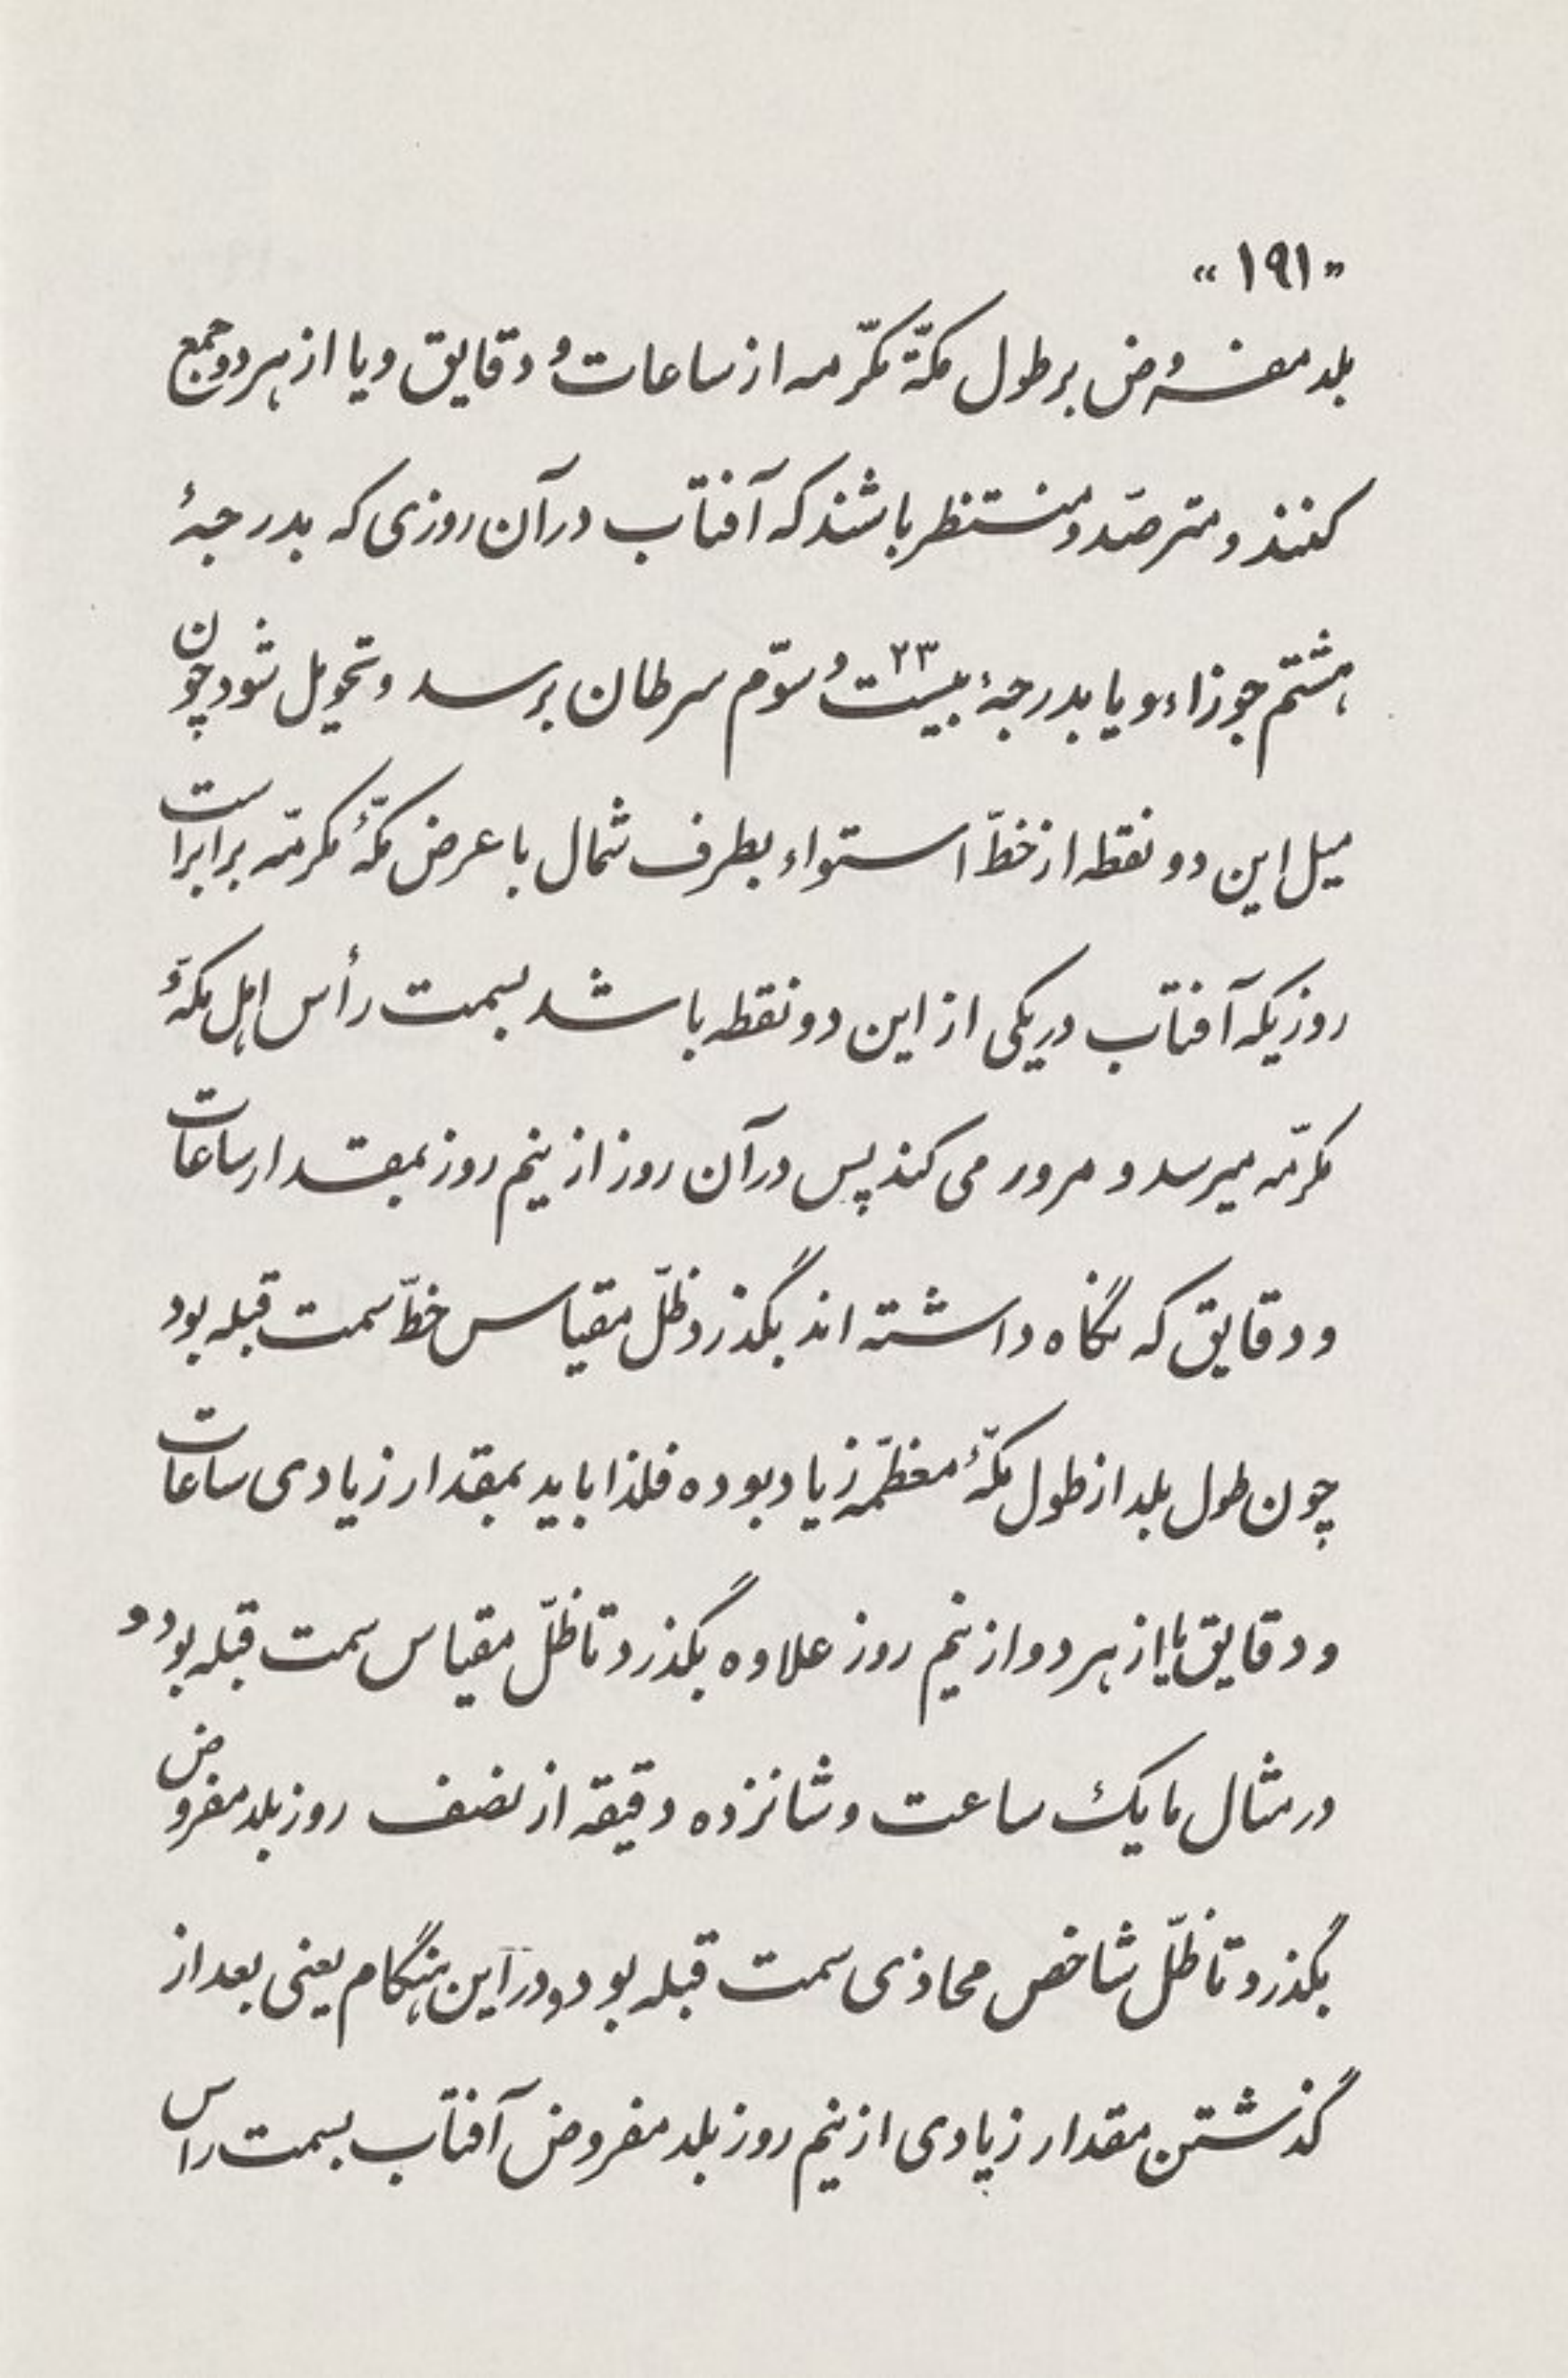 «۱۹۱»
بلد مفروض بر طول مکّة مکرّمه از ساعات و دقایق و یا از هر دو جمع
کنند و مترصّد و منتظر باشند که آفتاب در آن روزی که بدرجهٔ
هشتم جوزاء و یا بدرجهٔ بیست و سوّم ۲۳ سرطان برسد و تحویل شود چون
میل این دو نقطه از خطّ استواء بطرف شمال با عرض مکّهٔ مکرمّه برابر است
روزیکه آفتاب در یکی از این دو نقطه باشد بسمت رأس اهل مکهّٔ
مکرمّه میرسد و مرور می کند پس در آن روز از نیم روز بمقدار ساعات
و دقایق که نگاه داشته اند بگذرد ظلّ مقیاس خطّ سمت قبله بود
چون طول بلد از طول مکّهٔ معظمّه زیاد بوده فلذا باید بمقدار زیادی ساعات
و دقایق یا از هر دو از نیم روز علاوه بگذرد تا ظلّ مقیاس سمت قبله بود و
در مثال ما یک ساعت و شانزده دقیقه از نصف روز بلد مفروض
بگذرد تا ظلّ شاخص محاذی سمت قبله بود و در این هنگام یعنی بعد از
گذشتن مقدار زیادی از نیم روز بلد مفروض آفتاب بسمت راس